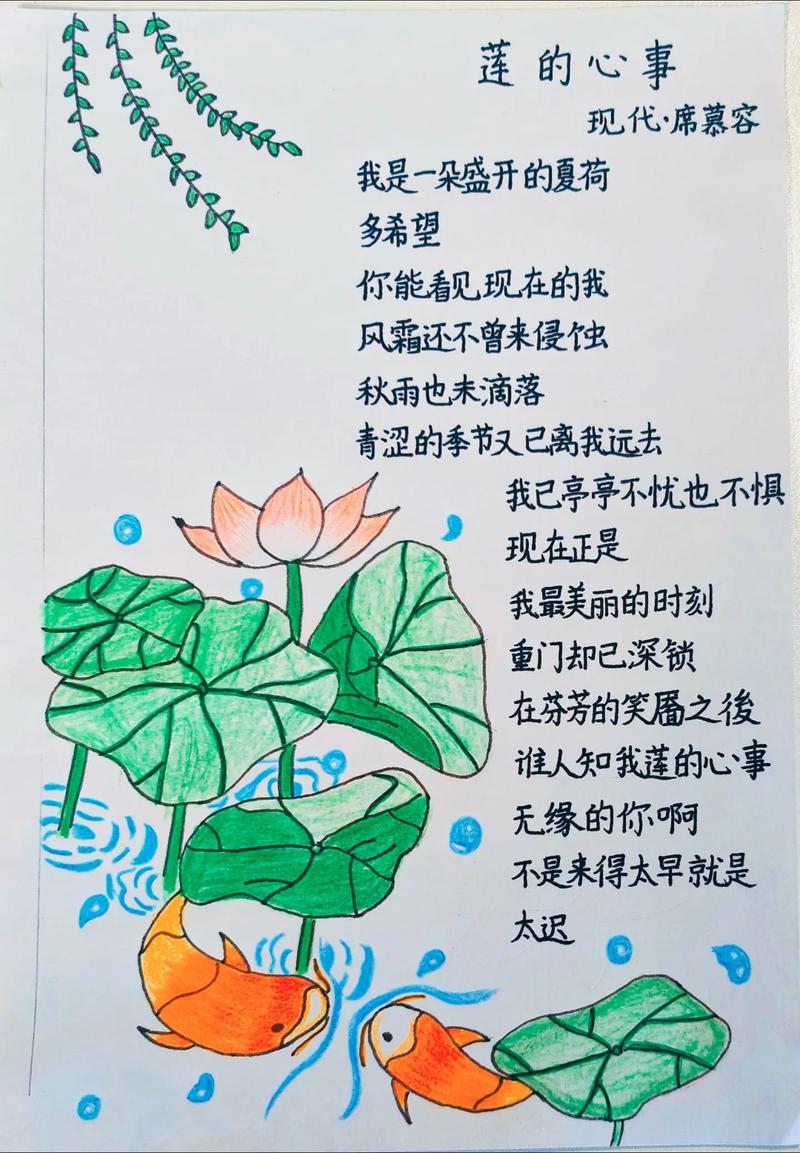 莲的心事
现代·席慕容
我是一朵盛开的夏荷
多希望
你能看见现在的我
风霜还不曾来侵蚀
秋雨也未滴落
青涩的季节又已离我远去
我已亭亭不忧也不惧
现在正是
我最美丽的时刻
重门却已深锁
在芬芳的笑靥之後
谁人知我莲的心事
无缘的你啊
不是来得太早就是
太迟